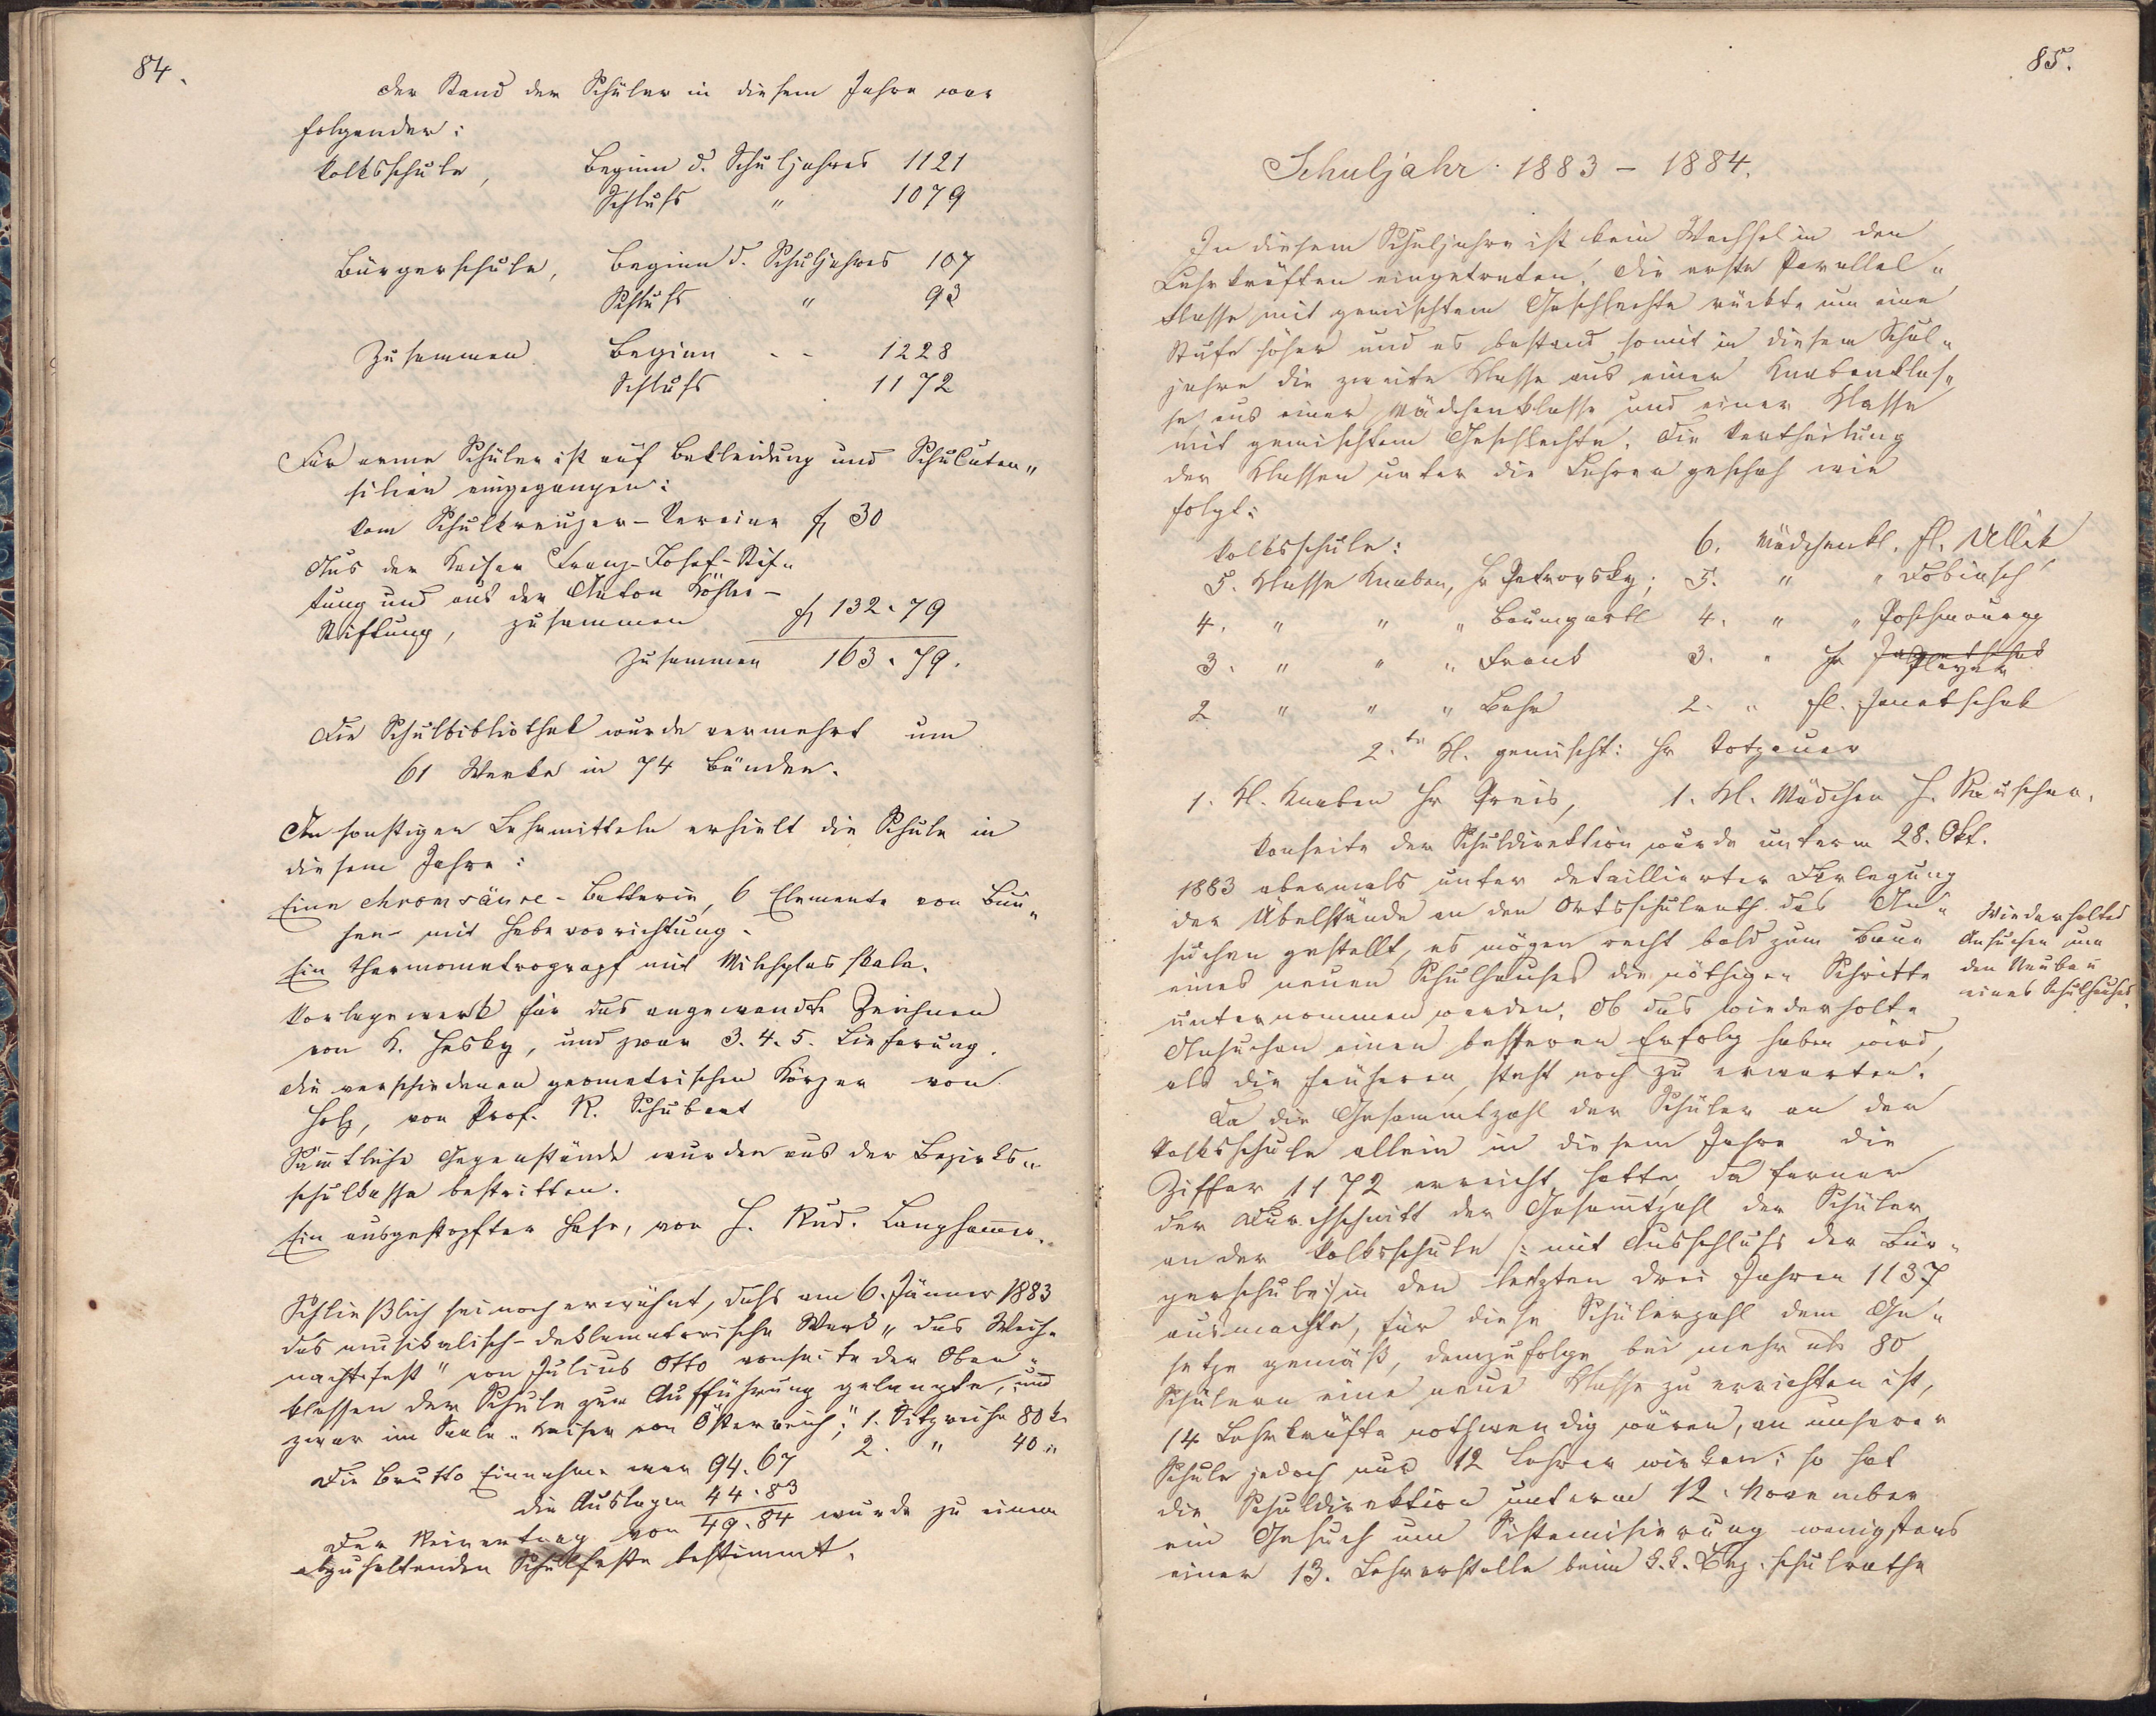 84.
Der Stand der Schüler in diesem Jahre war
folgender:
Volksschule, Beginn d. Schuljahres 1121
Schluß " 1079
Bürgerschule, Beginn d. Schuljahres 107
Schluß " 93
Zusammen Beginn - - 1228
Schluß 1172
Für arme Schüler ist auf Bekleidung und Schuluten„
silien eingegangen:
Vom Schulkreuzer-Vereine fl 30
Aus der Kaiser Franz-Josef-Stif„
tung und aus der Anton Köhler-
Stiftung, zusammen fl 132.79
Zusammen 163.79.
Die Schulbibliothek wurde vermehrt um
61 Werke in 74 Bänden.
An sonstigen Lehrmitteln erhielt die Schule in
diesem Jahre:
Eine chromsäure-Batterie, 6 Elemente von Bun„
sen mit Hebevorrichtung.
Ein Thermometrograpf mit Milchglas skala.
Vorlagewerk für das angewandte Zeichnen
von K. Hesky, und zwar 3. 4. 5. Lieferung.
Die verschiedenen geometrischen Körper von
Holz, von Prof. R. Schubert
Sämtliche Gegenstände wurden aus der Bezirks„
schulkasse bestritten.
Ein ausgestopfter Hase, von H. Rud. Langhammer.
Schließlich sei noch erwähnt, daß am 6. Jänner 1883
das musikalisch-deklamatorische Werk „Das Weih„
nachtsfest" von Julius Otto vonseite der Ober„
klassen der Schule zur Aufführung gelangte, und
zwar im Saale „Kaiser von Österreich"; 1. Sitzreihe 80 k.
2. " 40 "
Die Brutto Einnahme war 94.67
die Auslagen 44.83
Der Reinertrag von 49.84 wurde zu einem
abzuhaltenden Schulfeste bestimmt.
85.
Schuljahr 1883 - 1884.
In diesem Schuljahre ist kein Wechsel in den
Lehrkräften eingetreten. Die erste Parallel„
klasse mit gemischtem Geschlechte rückte um eine
Stufe höher und es bestand somit in diesem Schul„
jahre die zweite Klasse aus einer Knabenklas„
se aus einer Mädchenklasse und einer Klasse
mit gemischtem Geschlechte. Die Vertheilung
der Klassen unter die Lehrer geschah wie
folgt:
Volksschule: 6. Mädchenkl. Fl. Ullik
5. Klasse Knaben, Hr Petrovsky; 5. " " Dobiasch
4. " " " Baumgartl 4. " " Poschmourny
3. " " " Frank 3. " Hr Pleyer
2 " " " Behr 2. " Fl. Janatschek
2.te Kl. gemischt: Hr Votzauer
1. Kl. Knaben Hr Preis, 1. Kl. Mädchen H. Rauscher.
Vonseite der Schuldirektion wurde unterm 28. Okt.
1883 abermals unter detaillierter Darlegung
der Übelstände an den Ortsschulrath das An„
suchen gestellt, es mögen recht bald zum Baue
eines neuen Schulhauses die nöthigen Schritte
unternommen werden. Ob das wiederholte
Ansuchen einen besseren Erfolg haben wird,
als die früheren, steht noch zu erwarten.
Wiederholtes
Ansuchen um
den Neubau
eines Schulhauses.
Da die Gesammtzahl der Schüler an der
Volksschule allein in diesem Jahre die
Ziffer 1172 erreicht hatte, da ferner
der Durchschnitt der Gesamtzahl der Schüler
an der Volksschule /: mit Ausschluß der Bür„
gerschule :/ in den letzten drei Jahren 1137
ausmachte, für diese Schülerzahl dem Ge„
setze gemäß, demzufolge bei mehr als 80
Schülern eine neue Klasse zu errichten ist,
14 Lehrkräfte nothwendig wären, an unserer
Schule jedoch nur 12 Lehrer wirken; so hat
die Schuldirektion unterm 12. November
ein Gesuch um Sistemisierung wenigstens
einer 13. Lehrerstelle beim k.k. Bez. schulrathe